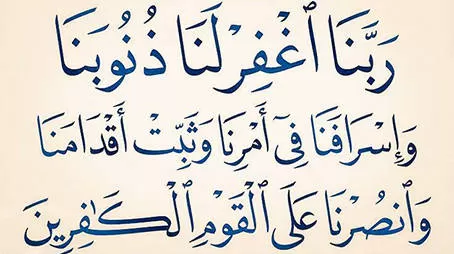 رَبَّنَا ٱغْفِرْ لَنَا ذُنُوبَنَا
وَإِسْرَافَنَا فِىٓ أَمْرِنَا وَثَبِّتْ أَقْدَامَنَا
وَٱنصُرْنَا عَلَى ٱلْقَوْمِ ٱلْكَـٰفِرِينَ